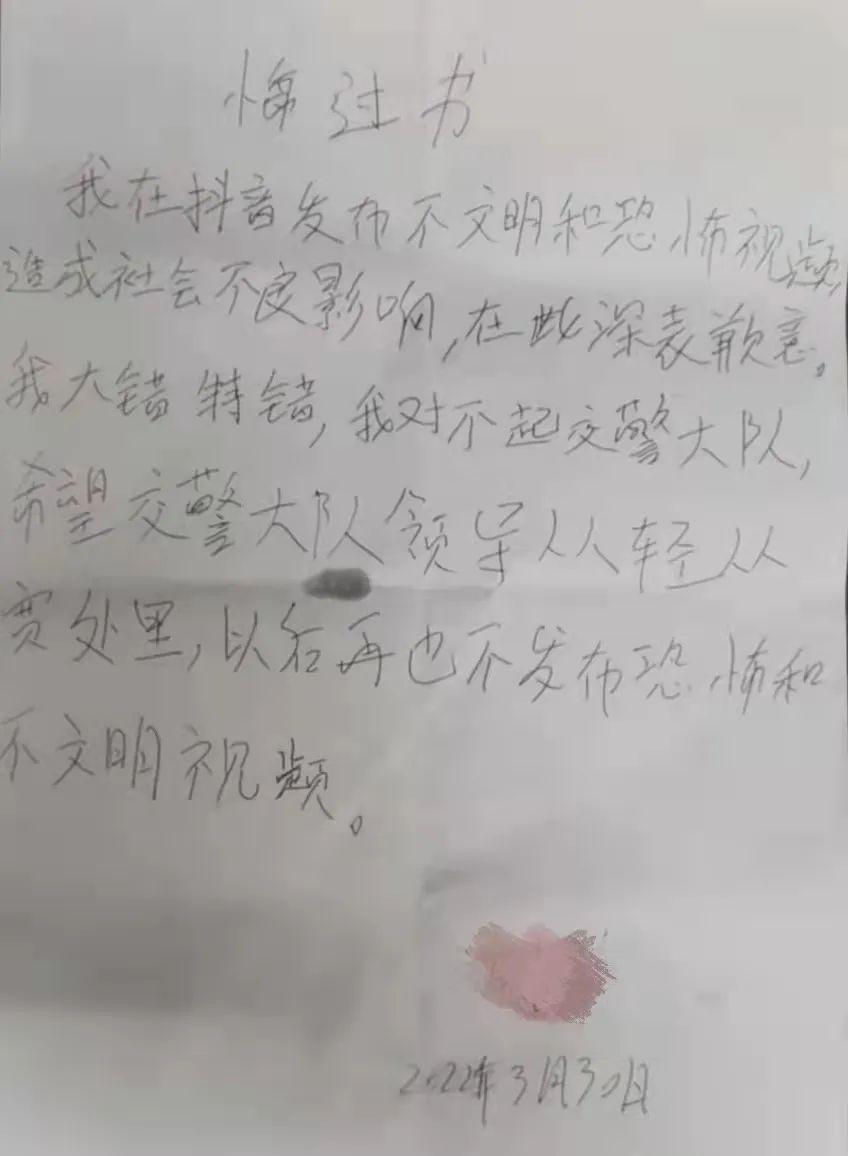 悔过书
我在抖音发布不文明和恐怖视频,
造成社会不良影响,在此深表歉意。
我大错特错,我对不起交警大队,
希望交警大队领导从轻从
宽处里,以后再也不发布恐怖和
不文明视频。
2022年3月30日